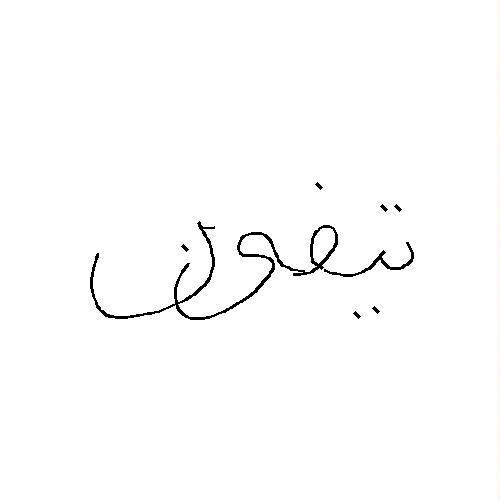 تيفون